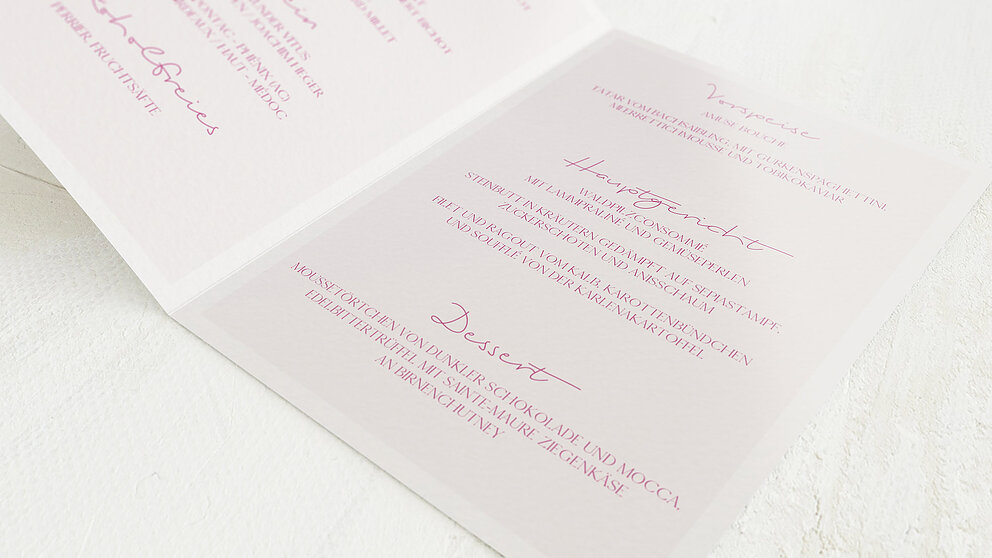 MILLET
BICHOT
ein
UNDER VITUS
JOACHIM HEGER
PONTAC - PHÉNIX (AC)
HAUT - MÉDOC
oholfreies
PERRIER, FRUCHTSÄFTE
Vorspeise
AMUSE-BOUCHE
TATAR VOM BACHSAIBLING, MIT GURKENSPAGHETTINI,
MEERRETTICHMOUSSE UND TOBIKOKAVIAR
Hauptgericht
WALDPILZCONSOMMÉ
MIT LAMMPRALINÉ UND GEMÜSEPERLEN
STEINBUTT IN KRÄUTERN GEDÄMPFT AUF SEPIASTAMPF,
ZUCKERSCHOTEN UND ANISSCHAUM
FILET UND RAGOUT VOM KALB, KAROTTENBÜNDCHEN
UND SOUFFLÉ VON DER KARLENAKARTOFFEL
Dessert
MOUSSETÖRTCHEN VON DUNKLER SCHOKOLADE UND MOCCA,
EDELBITTERTRÜFFEL MIT SAINTE-MAURE ZIEGENKÄSE
AN BIRNENCHUTNEY